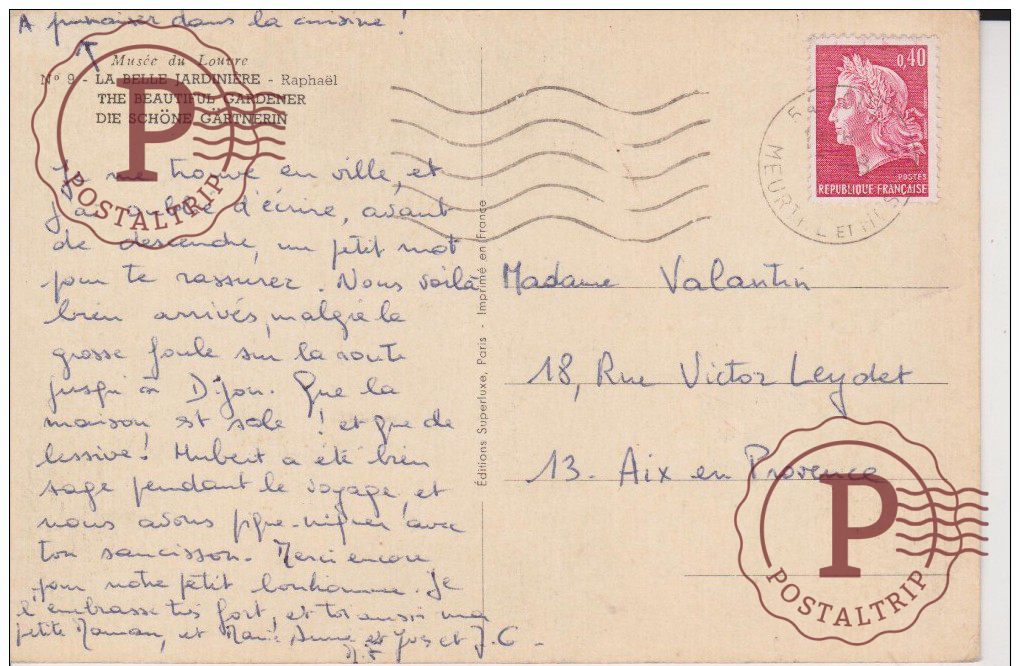 A punaiser dans la cuisine !
Musée du Louvre
N° 9 - LA BELLE JARDINIERE - Raphaël
THE BEAUTIFUL GARDENER
DIE SCHÖNE GÄRTNERIN
Je me trouve en ville, et
j'ai d'écrire, avant
de descendre, un petit mot
pour te rassurer. Nous voilà
bien arrivés, malgré la
grosse foule sur la route
jusqu'à Dijon. Que la
maison est sale ! et que de
lessive ! Hubert a été bien
sage pendant le voyage, et
nous avons pique-niquer avec
ton saucisson. Merci encore
pour notre petit bonhomme. Je
l'embrasse très fort, et toi aussi ma
petite Maman, et Marie Anne et Yves et J.C -
Éditions Superluxe, Paris - Imprimé en France
0,40
POSTES
REPUBLIQUE FRANÇAISE
MEURTHE ET
Madame Valantin
18, Rue Victor Leydet
13 - Aix en Provence
P
POSTALTRIP
P
POSTALTRIP